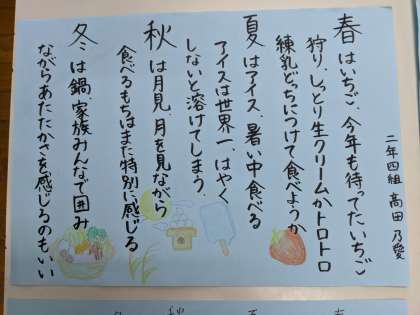 二年四組 高田 乃愛
春はいちご、今年も待ってたいちご
狩り、しっとり生クリームかトロトロ
練乳どっちにつけて食べようか
夏はアイス、暑い中食べる
アイスは世界一、はやく
しないと溶けてしまう、
秋は月見、月を見ながら
食べるもちはまた特別に感じる
冬は鍋、家族みんなで囲み
ながらあたたかさを感じるのもいい
春
夏
秋